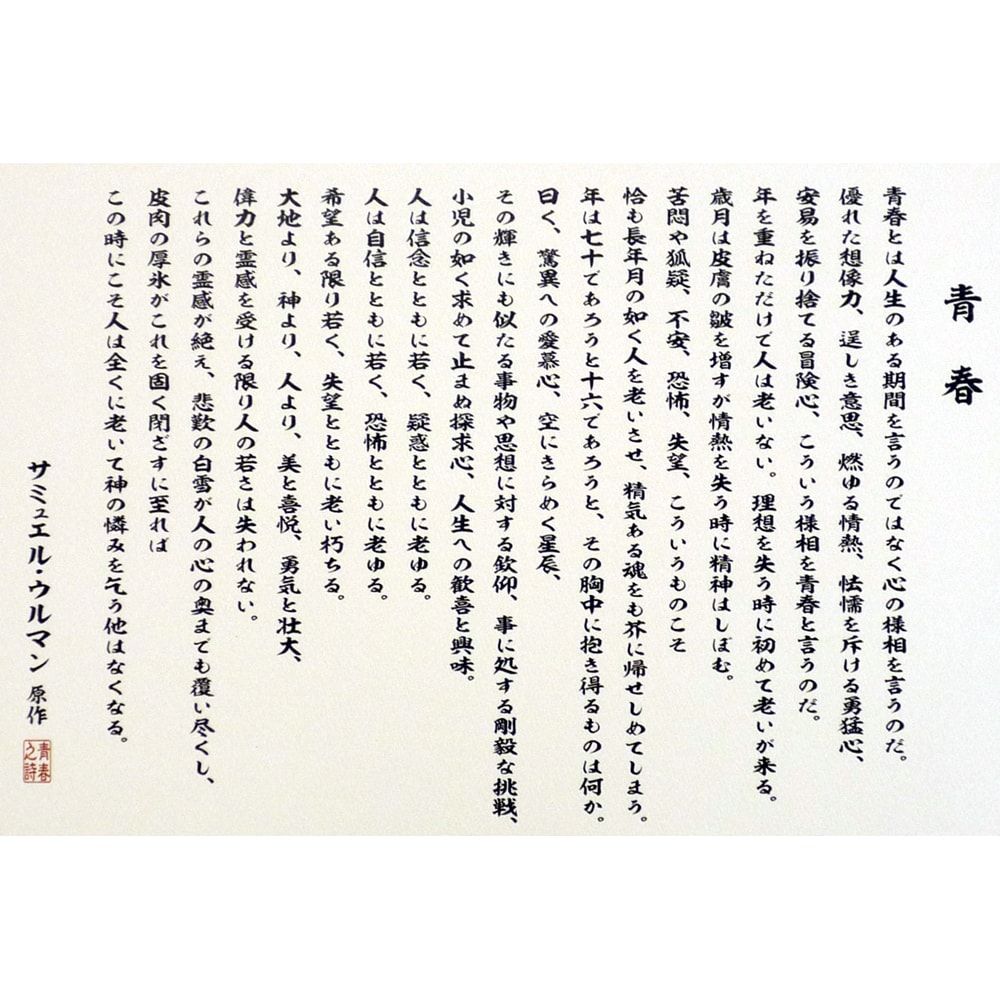 青春
青春とは人生のある期間を言うのではなく心の様相を言うのだ。
優れた想像力、逞しき意思、燃ゆる情熱、怯懦を斥ける勇猛心、
安易を振り捨てる冒険心、こういう様相を青春と言うのだ。
年を重ねただけで人は老いない。理想を失う時に初めて老いが来る。
歳月は皮膚の皺を増すが情熱を失う時に精神はしぼむ。
苦悶や狐疑、不安、恐怖、失望、こういうものこそ
恰も長年月の如く人を老いさせ、精気ある魂をも芥に帰せしめてしまう。
年は七十であろうと十六であろうと、その胸中に抱き得るものは何か。
曰く、驚異への愛慕心、空にきらめく星辰、
その輝きにも似たる事物や思想に対する欽仰、事に処する剛毅な挑戦、
小児の如く求めて止まぬ探求心、人生への歓喜と興味。
人は信念とともに若く、疑惑とともに老ゆる。
人は自信とともに若く、恐怖とともに老ゆる。
希望ある限り若く、失望とともに老い朽ちる。
大地より、神より、人より、美と喜悦、勇気と壮大、
偉力と霊感を受ける限り人の若さは失われない。
これらの霊感が絶え、悲歎の白雪が人の心の奥までも覆い尽くし、
皮肉の厚氷がこれを固く閉ざすに至れば
この時にこそ人は全くに老いて神の憐みを乞う他はなくなる。
サミュエル・ウルマン 原作
青春之詩